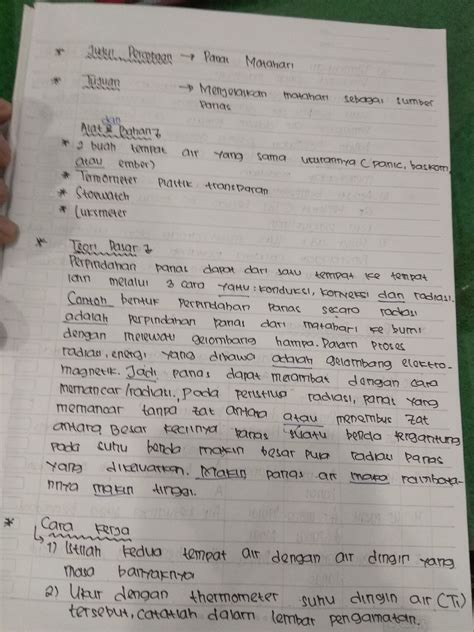 * Judul Percobaan → Panas Matahari
* Tujuan → Menjelaskan matahari sebagai sumber
panas
Alat dan Bahan
* 2 buah tempat air yang sama ukurannya (panic, baskom,
atau ember)
* Termometer plastik transparan
* Stopwatch
* Luksmeter
* Teori Dasar
Perpindahan panas dapat dari satu tempat ke tempat
lain melalui 3 cara yaitu: konduksi, konveksi dan radiasi.
Contoh bentuk perpindahan panas secara radiasi
adalah perpindahan panas dari matahari ke bumi
dengan melewati gelombang hampa. Dalam proses
radiasi, energi yang dibawa adalah gelombang elektro-
magnetik. Jadi panas dapat merambat dengan cara
memancar/radiasi. Pada peristiwa radiasi, panas yang
memancar tanpa zat antara atau menembus zat
antara Besar kecilnya panas suatu benda tergantung
pada suhu benda makin besar pula radiasi panas
yang dikeluarkan. Makin panas air maka
nya makin tinggi.
* Cara Kerja
1) Isilah kedua tempat air dengan air dingin yang
banyaknya
2) Ukur dengan thermometer suhu dingin air (T1)
tersebut, catatlah dalam lembar pengamatan.